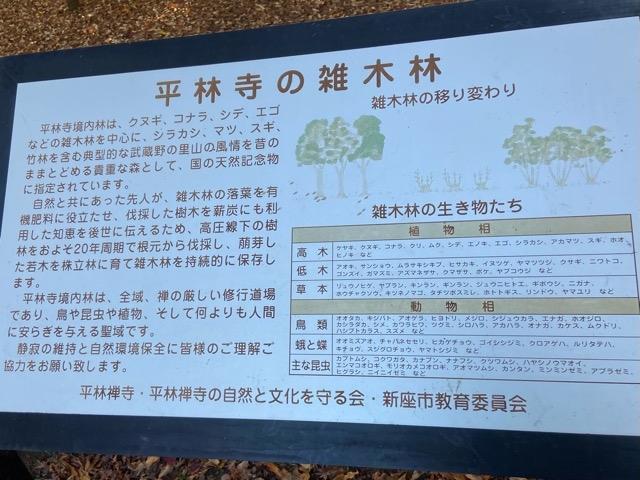 平林寺の雑木林
平林寺境内林は、クヌギ、コナラ、シデ、エゴ
などの雑木林を中心に、シラカシ、マツ、スギ、
竹林を含む典型的な武蔵野の里山の風情を昔の
ままとどめる貴重な森として、国の天然記念物
に指定されています。
自然と共にあった先人が、雑木林の落葉を有
機肥料に役立たせ、伐採した樹木を薪炭にも利
用した知恵を後世に伝えるため、高圧線下の樹
林をおよそ20年周期で根元から伐採し、萌芽し
た若木を株立林に育て雑木林を持続的に保存しま
す。
平林寺境内林は、全域、禅の厳しい修行道場
であり、鳥や昆虫や植物、そして何よりも人間
に安らぎを与える聖域です。
静寂の維持と自然環境保全に皆様のご理解ご
協力をお願い致します。
雑木林の移り変わり
雑木林の生き物たち
植物相
高木 ケヤキ、クヌギ、コナラ、クリ、ムク、シデ、エノキ、エゴ、シラカシ、アカマツ、スギ、ホオ、
ヒノキ など
低木 アオキ、サンショウ、ムラサキシキブ、ヒサカキ、イヌツゲ、ヤマツツジ、クサギ、ニワトコ、
ゴンズイ、ガマズミ、アズマネザサ、クマザサ、ボケ、ヤブコウジ など
草本 リュウノヒゲ、ヤブラン、キンラン、ギンラン、ジュウニヒトエ、ギボウシ、ニガナ、
ホウチャクソウ、キツネノマゴ、タチツボスミレ、ホトトギス、リンドウ、ヤマユリ など
動物相
鳥類 オオタカ、キジバト、アオゲラ、ヒヨドリ、メジロ、シジュウカラ、エナガ、ホオジロ、
カシラダカ、シメ、カワラヒワ、ツグミ、シロハラ、アカハラ、オナガ、カケス、ムクドリ、
ハシブトカラス、スズメ など
蛾と蝶 オオミズアオ、チャバネセセリ、ヒカゲチョウ、ゴイシシジミ、クロアゲハ、ルリタテハ、
キチョウ、スジグロチョウ、ヤマトシジミ など
主な昆虫 カブトムシ、コクワガタ、カナブン、ナナフシ、クツワムシ、ハヤシノウマオイ、
エンマコオロギ、モリオカメコオロギ、アオマツムシ、カンタン、ミンミンゼミ、アブラゼミ、
ヒグラシ、ニイニイゼミ など
平林禅寺・平林禅寺の自然と文化を守る会・新座市教育委員会